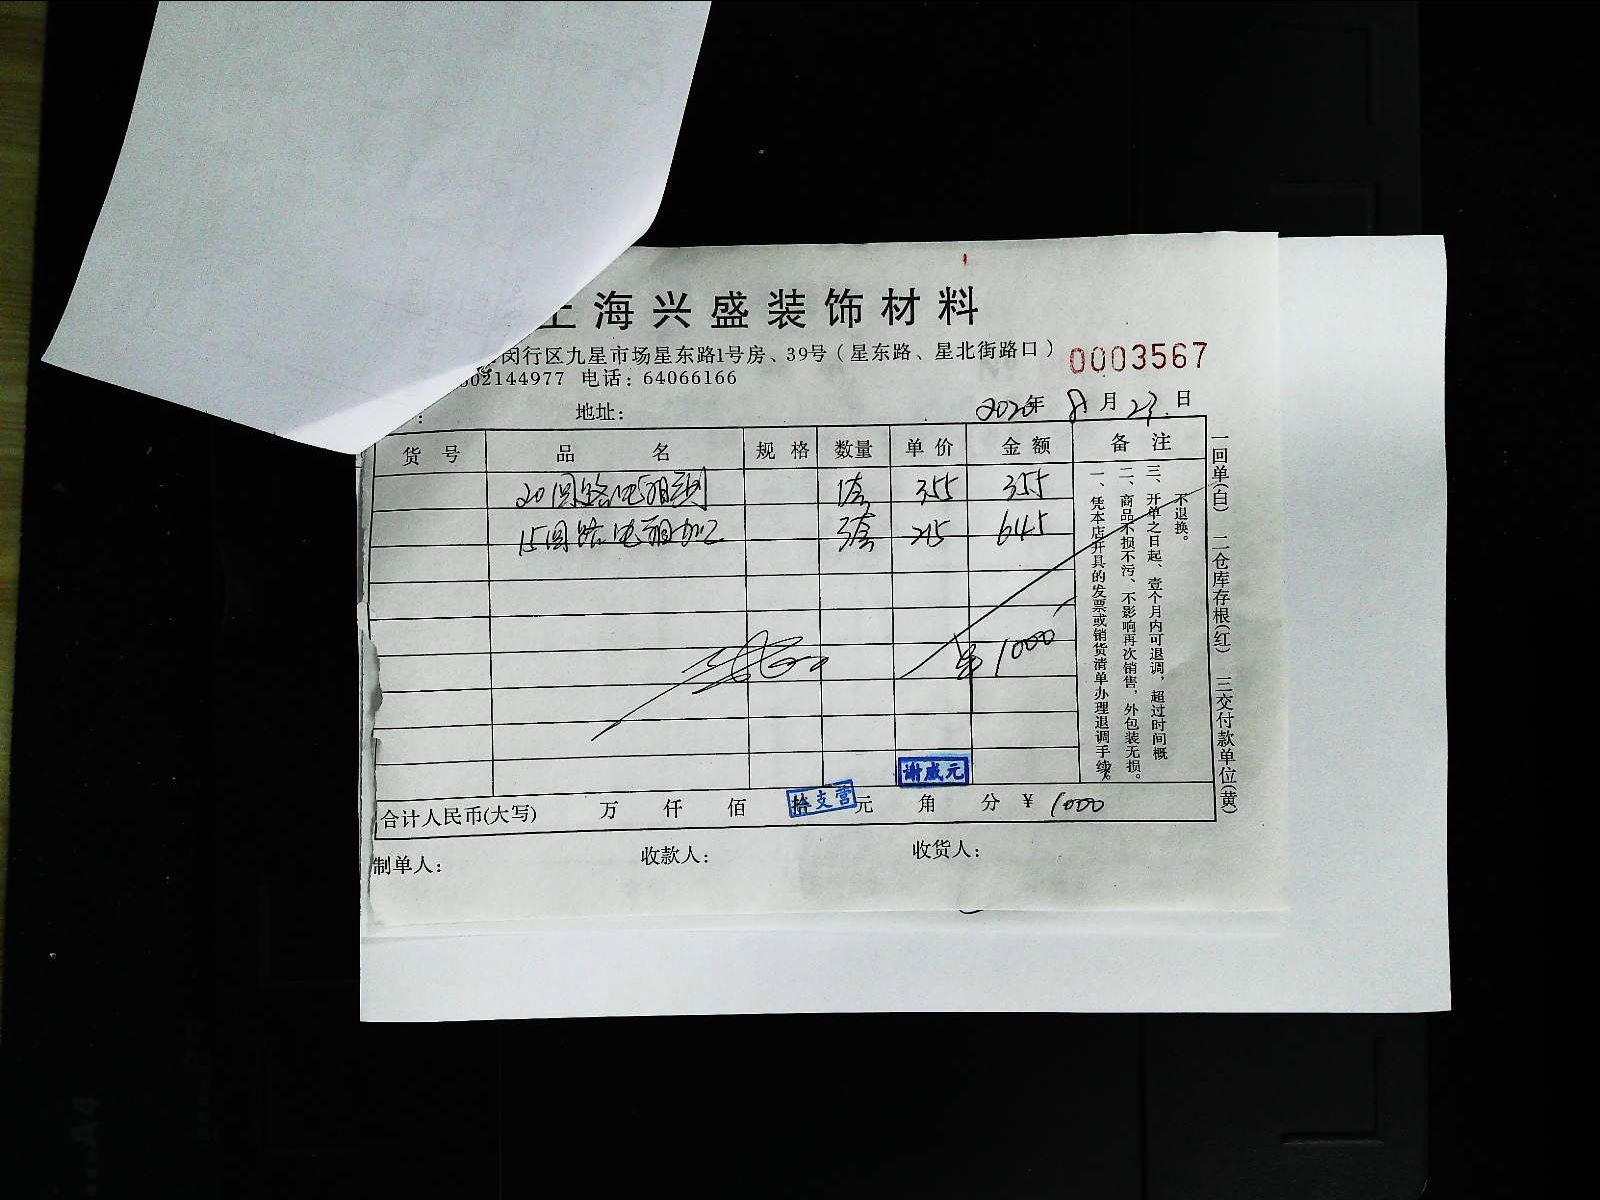 上海兴盛装饰材料
闵行区九星市场星东路1号房、39号(星东路、星北街路口)
0003567
02144977 电话:64066166
: 地址:
2020年 8月 23日
货号 品名 规格 数量 单价 金额 备注
20回路电箱 1套 355 355
15回路电箱 3套 215 645
¥1000
一、凭本店开具的发票或销货清单办理退调手续。
二、商品不损不污、不影响再次销售,外包装无损。
三、开单之日起、壹个月内可退调,超过时间概
不退换。
一回单(白) 二仓库存根(红) 三交付款单位(黄)
谢成元
合计人民币(大写) 万 仟 佰 拾 元 角 分 ¥ 1000
支营
制单人: 收款人: 收货人:
A4